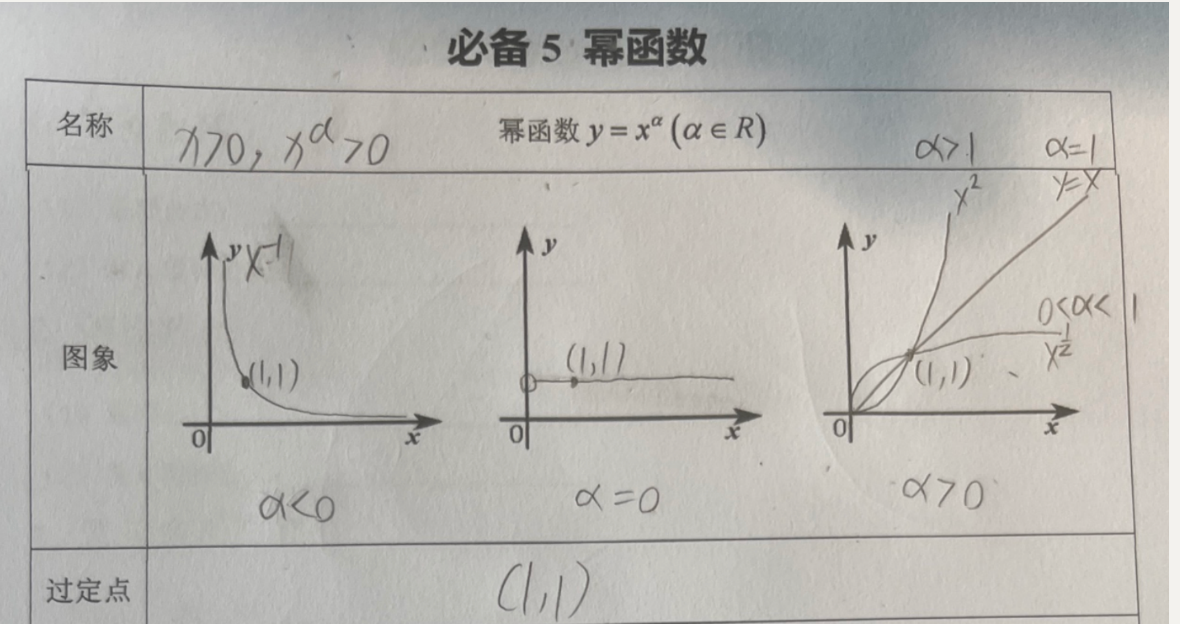 必备 5 幂函数
名称
x>0, x^α>0
幂函数 y = x^α (α ∈ R)
α>1
α=1
图象
y
x^-1
(1,1)
0
x
α<0
y
(1,1)
0
x
α=0
y
x^2
y=x
0<α<1
x^½
(1,1)
0
x
α>0
过定点
(1,1)